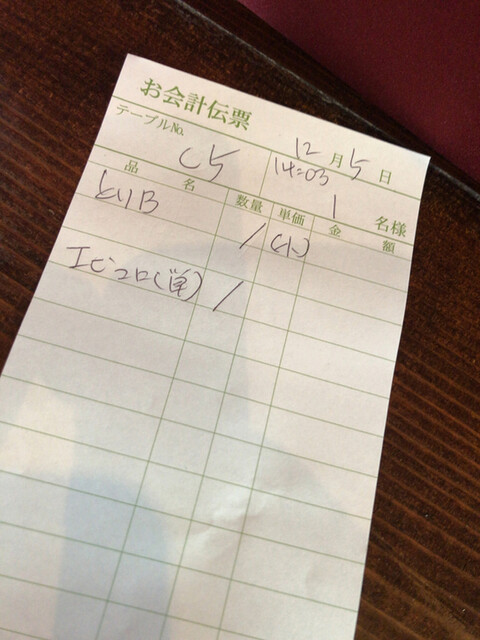 お会計伝票
テーブルNo. C5 12月5日
14:03 1名様
品名 数量 単価 金額
とりB 1 (小)
エビコロ(単) 1